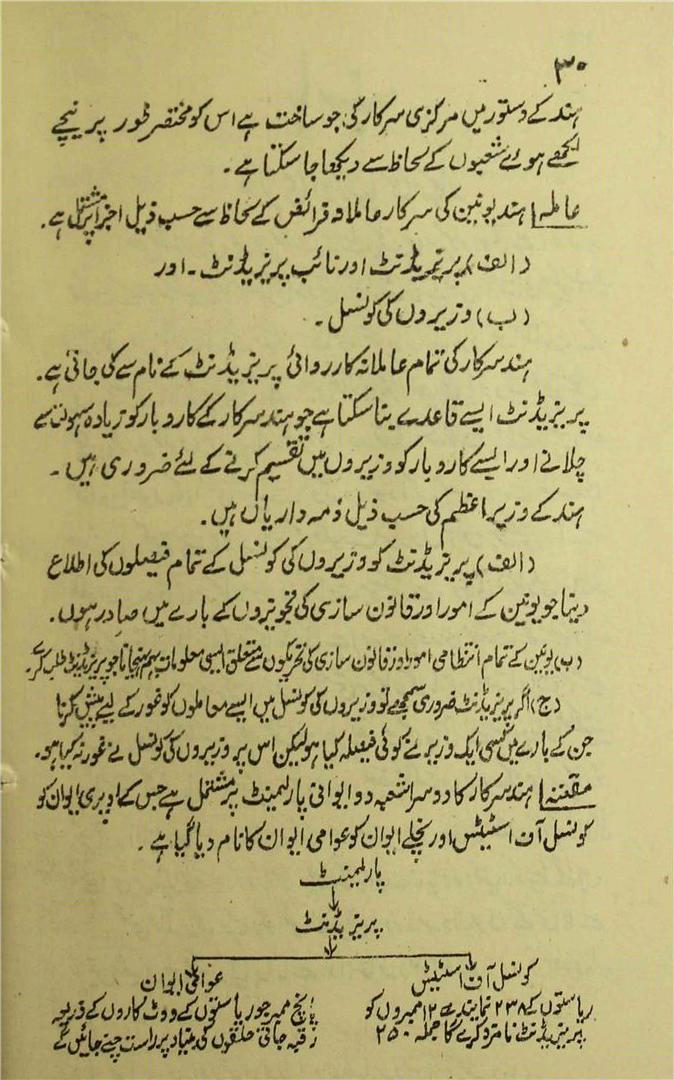 ۳۰
ہند کے دستور میں مرکزی سرکار کی جو ساخت ہے اس کو مختصر طور پر نیچے
لکھے ہوئے شعبوں کے لحاظ سے دیکھا جا سکتا ہے۔
عاملہ| ہند یونین کی سرکار عاملانہ فرائض کے لحاظ سے حسب ذیل اجزا پر مشتمل ہے۔
(الف) پریزیڈنٹ اور نائب پریزیڈنٹ۔ اور
(ب) وزیروں کی کونسل۔
ہند سرکار کی تمام عاملانہ کارروائی پریزیڈنٹ کے نام سے کی جاتی ہے۔
پریزیڈنٹ ایسے قاعدے بنا سکتا ہے جو ہند سرکار کے کاروبار کو زیادہ سہولت سے
چلانے اور ایسے کاروبار کو وزیروں میں تقسیم کرنے کے لئے ضروری ہیں۔
ہند کے وزیر اعظم کی حسب ذیل ذمہ داریاں ہیں۔
(الف) پریزیڈنٹ کو وزیروں کی کونسل کے تمام فیصلوں کی اطلاع
دینا جو یونین کے امور اور قانون سازی کی تجویزوں کے بارے میں صادر ہوں۔
(ب) یونین کے تمام انتظامی امور اور قانون سازی کی تحریکوں سے متعلق ایسی معلومات بہم پہنچانا جو پریزیڈنٹ طلب کرے۔
(ج) اگر پریزیڈنٹ ضروری سمجھے تو وزیروں کی کونسل میں ایسے معاملوں کو غور کے لیے پیش کرنا
جن کے بارے میں کسی ایک وزیر نے کوئی فیصلہ کیا ہو لیکن اس پر وزیروں کی کونسل نے غور نہ کیا ہو۔
مقننہ| ہند سرکار کا دوسرا شعبہ دو ایوانی پارلیمنٹ پر مشتمل ہے جس کے اوپری ایوان کو
کونسل آف اسٹیٹس اور نچلے ایوان کو عوامی ایوان کا نام دیا گیا ہے۔
پارلیمنٹ
پریزیڈنٹ
کونسل آف اسٹیٹس
ریاستوں کے ۲۳۸ نمایندے ۱۲ ممبروں کو
پریزیڈنٹ نامزد کرے گا جملہ ۲۵۰
عوامی ایوان
ممبر جو ریاستوں کے ووٹ کاروں کے ذریعہ
رقبہ جاتی حلقوں کی بنیاد پر راست چنے جائیں گے